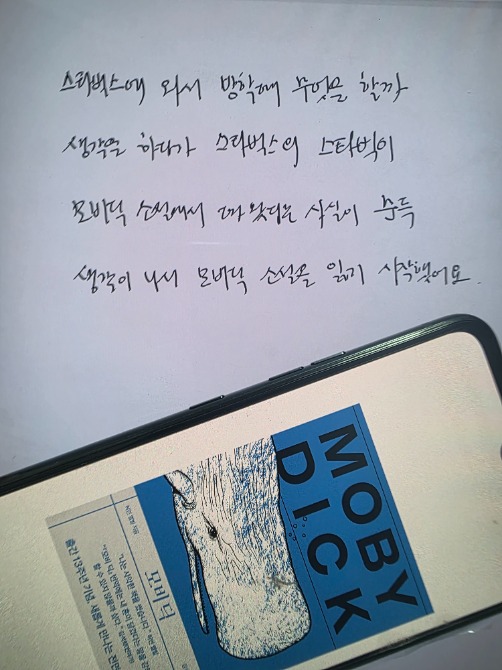 스타벅스에 와서 방학때 무엇을 할까
생각을 하다가 스타벅스의 스타벅이
모비딕 소설에서 따 왔다는 사실이 문득
생각이 나서 모비딕 소설을 읽기 시작했어요.
MOBY
DICK
모비딕
출간 13주년 기념, 새롭게 만나는